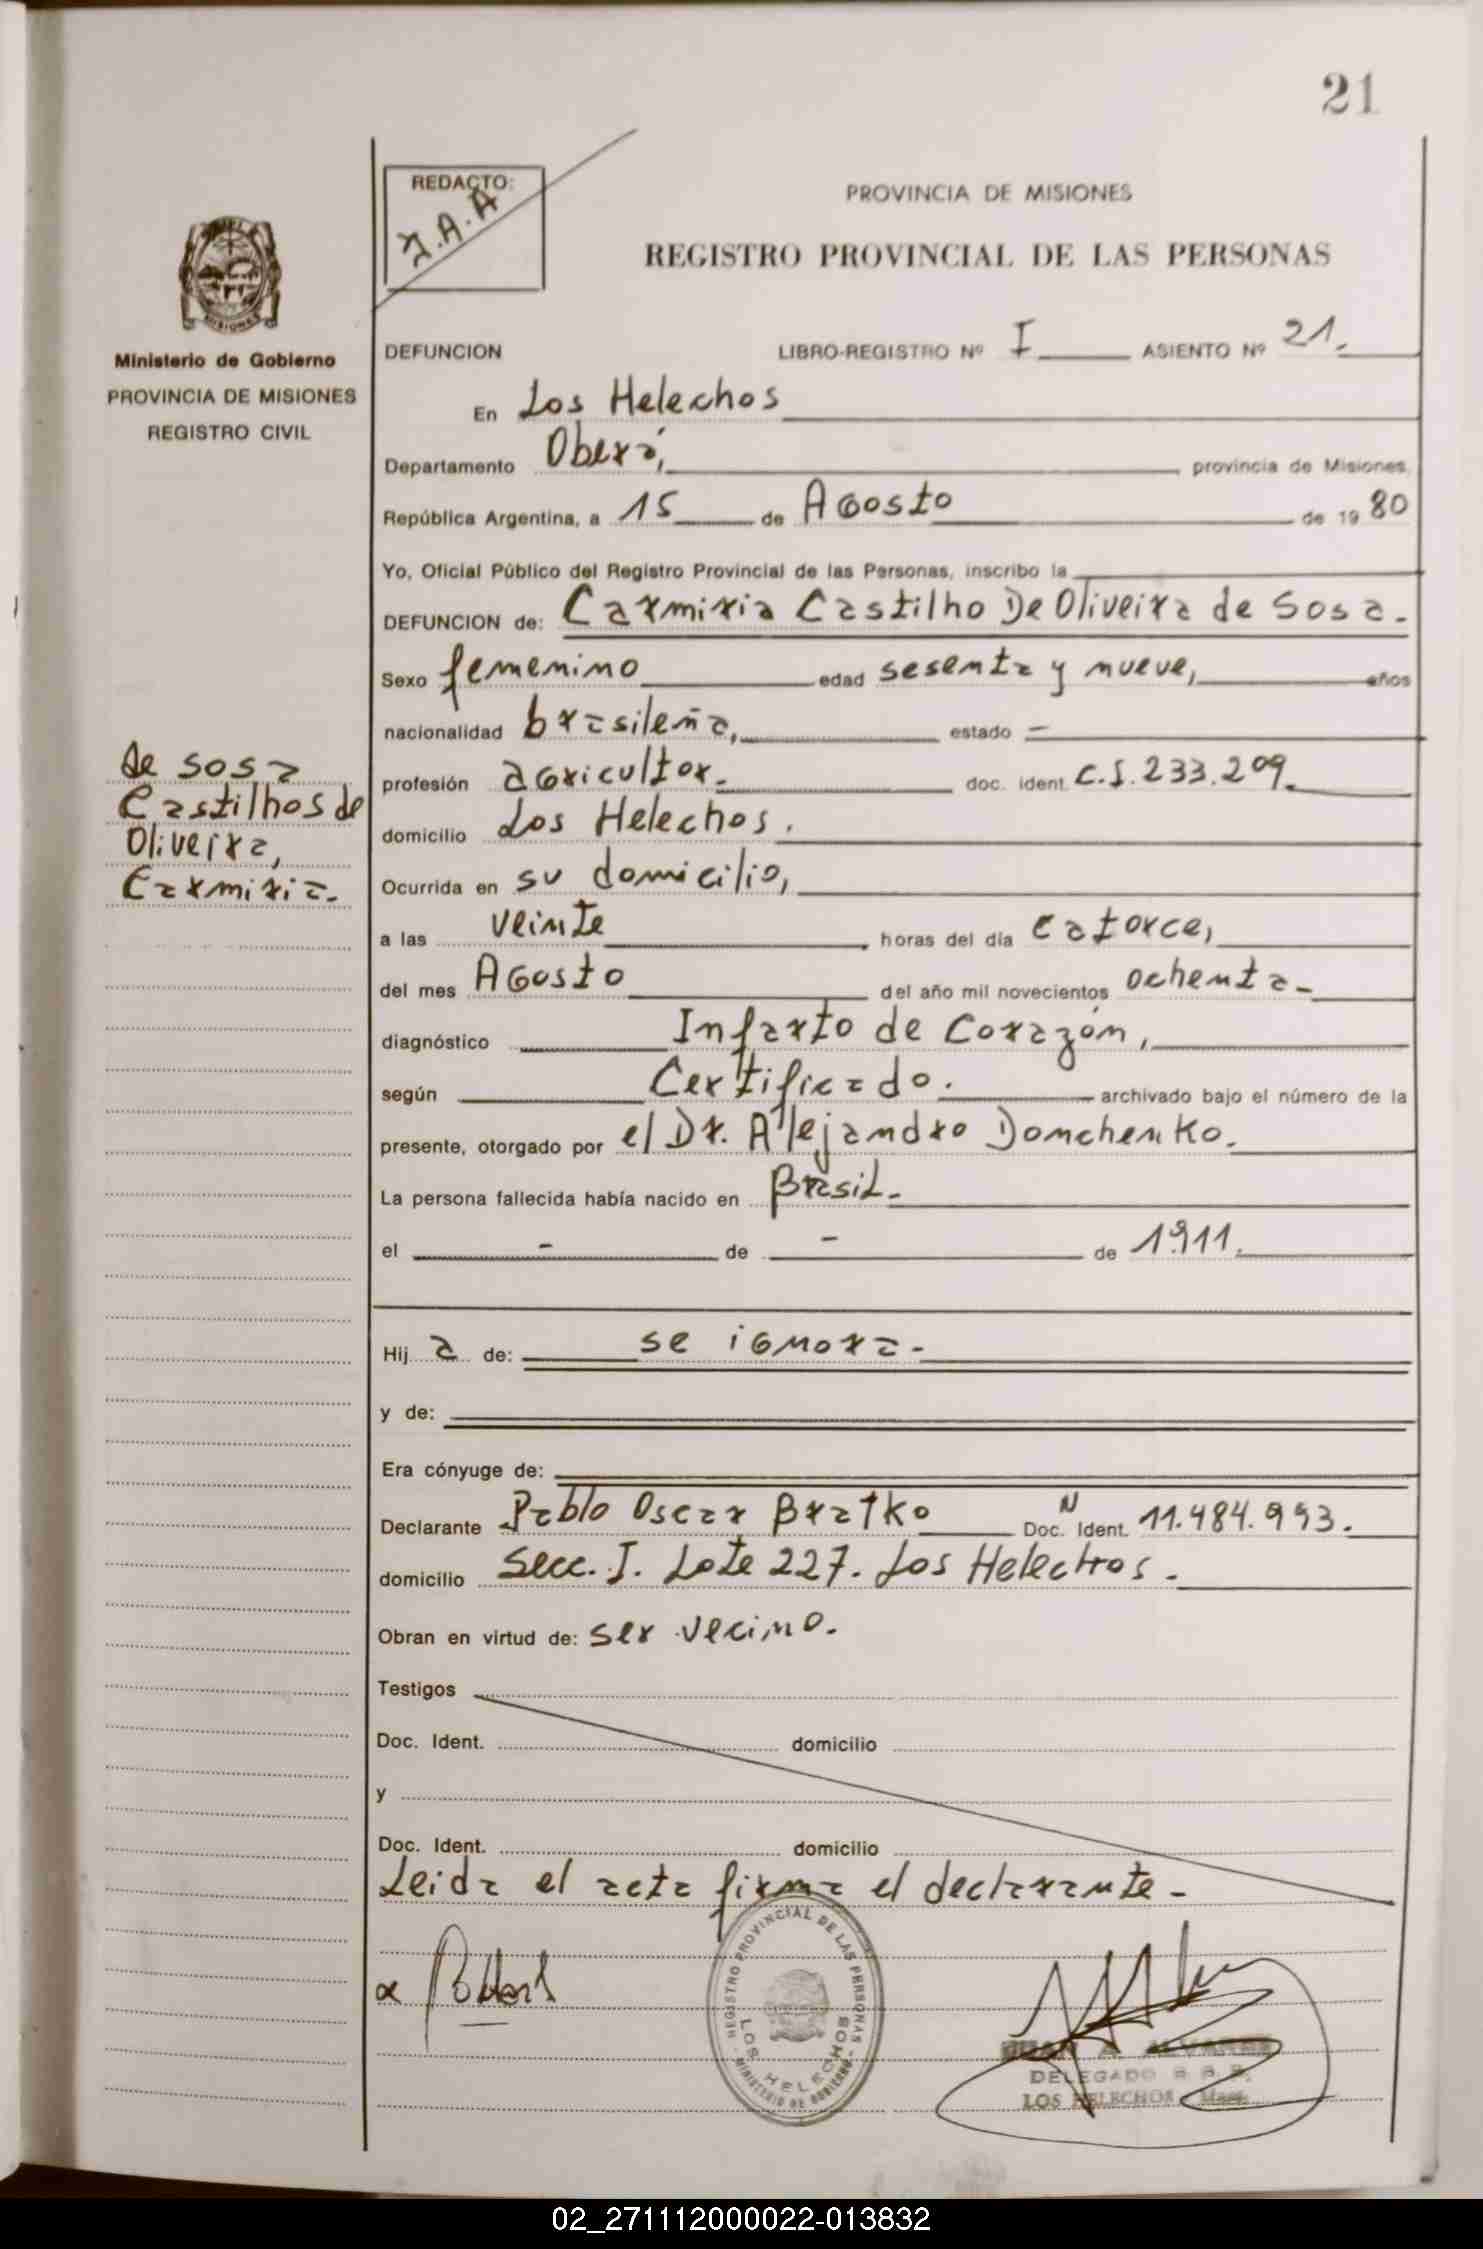 21
REDACTO:
J.A.A
PROVINCIA DE MISIONES
REGISTRO PROVINCIAL DE LAS PERSONAS
MISIONES
Ministerio de Gobierno
PROVINCIA DE MISIONES
REGISTRO CIVIL
DEFUNCION LIBRO-REGISTRO Nº I ASIENTO Nº 21.
En Los Helechos
Departamento Oberá, provincia de Misiones,
República Argentina, a 15 de Agosto de 1980
Yo, Oficial Público del Registro Provincial de las Personas, inscribo la
DEFUNCION de: Carmiria Castilho De Oliveira de Sosa.
Sexo femenino edad sesenta y nueve, años
nacionalidad brasileña, estado –
profesión agricultor. doc. ident. C.I. 233.209.
domicilio Los Helechos.
de sosa
Castilhos de
Oliveira,
Carmiria.
Ocurrida en su domicilio,
a las veinte horas del día catorce,
del mes Agosto del año mil novecientos ochenta-
diagnóstico Infarto de Corazón,
según Certificado. archivado bajo el número de la
presente, otorgado por el Dr. Allejandro Domchenko.
La persona fallecida había nacido en Brasil.
el - de - de 1911.
Hij a de: se ignora-
y de:
Era cónyuge de:
Declarante Pablo Oscar Bratko Doc. Ident. N 11.484.993.
domicilio Secc. I. Lote 227. Los Helechos.
Obran en virtud de: ser vecino.
Testigos
Doc. Ident. domicilio
y
Doc. Ident. domicilio
Leida el acta firma el declarante-
REGISTRO PROVINCIAL DE LAS PERSONAS
LOS HELECHOS
MINISTERIO DE GOBIERNO
JUAN A. ALVAREZ
DELEGADO R. P. P.
LOS HELECHOS
02_271112000022-013832